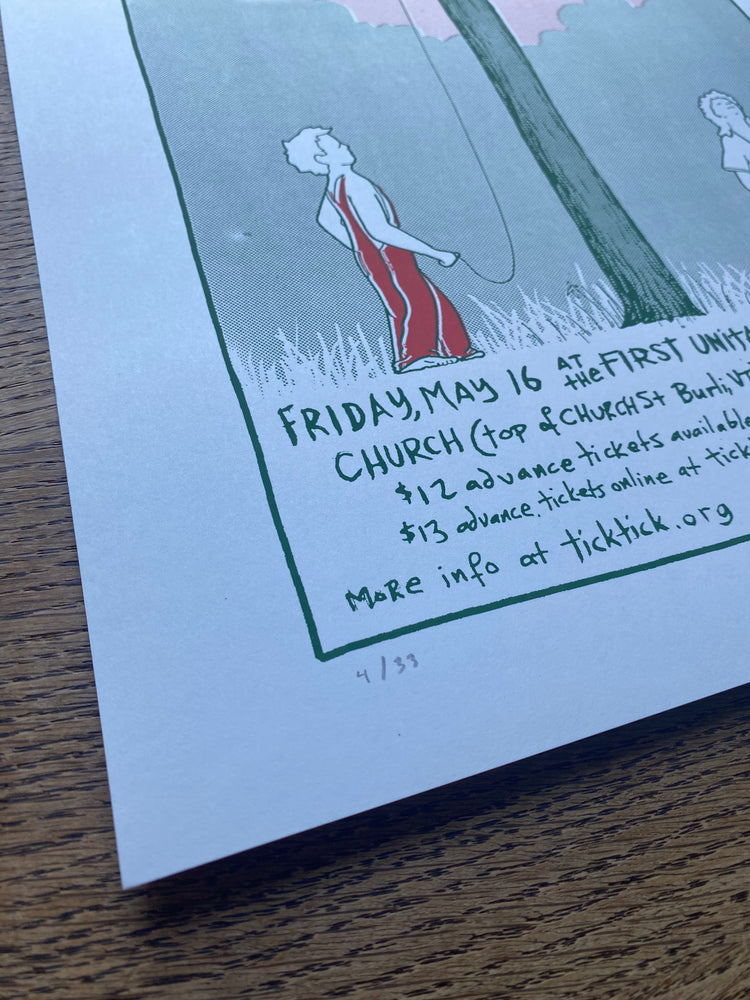 FRIDAY, MAY 16 AT the FIRST UNITA
CHURCH (top of CHURCH St Burli, VT
$12 advance tickets available
$13 advance tickets online at tick
MoRe info at ticktick.org
4/33